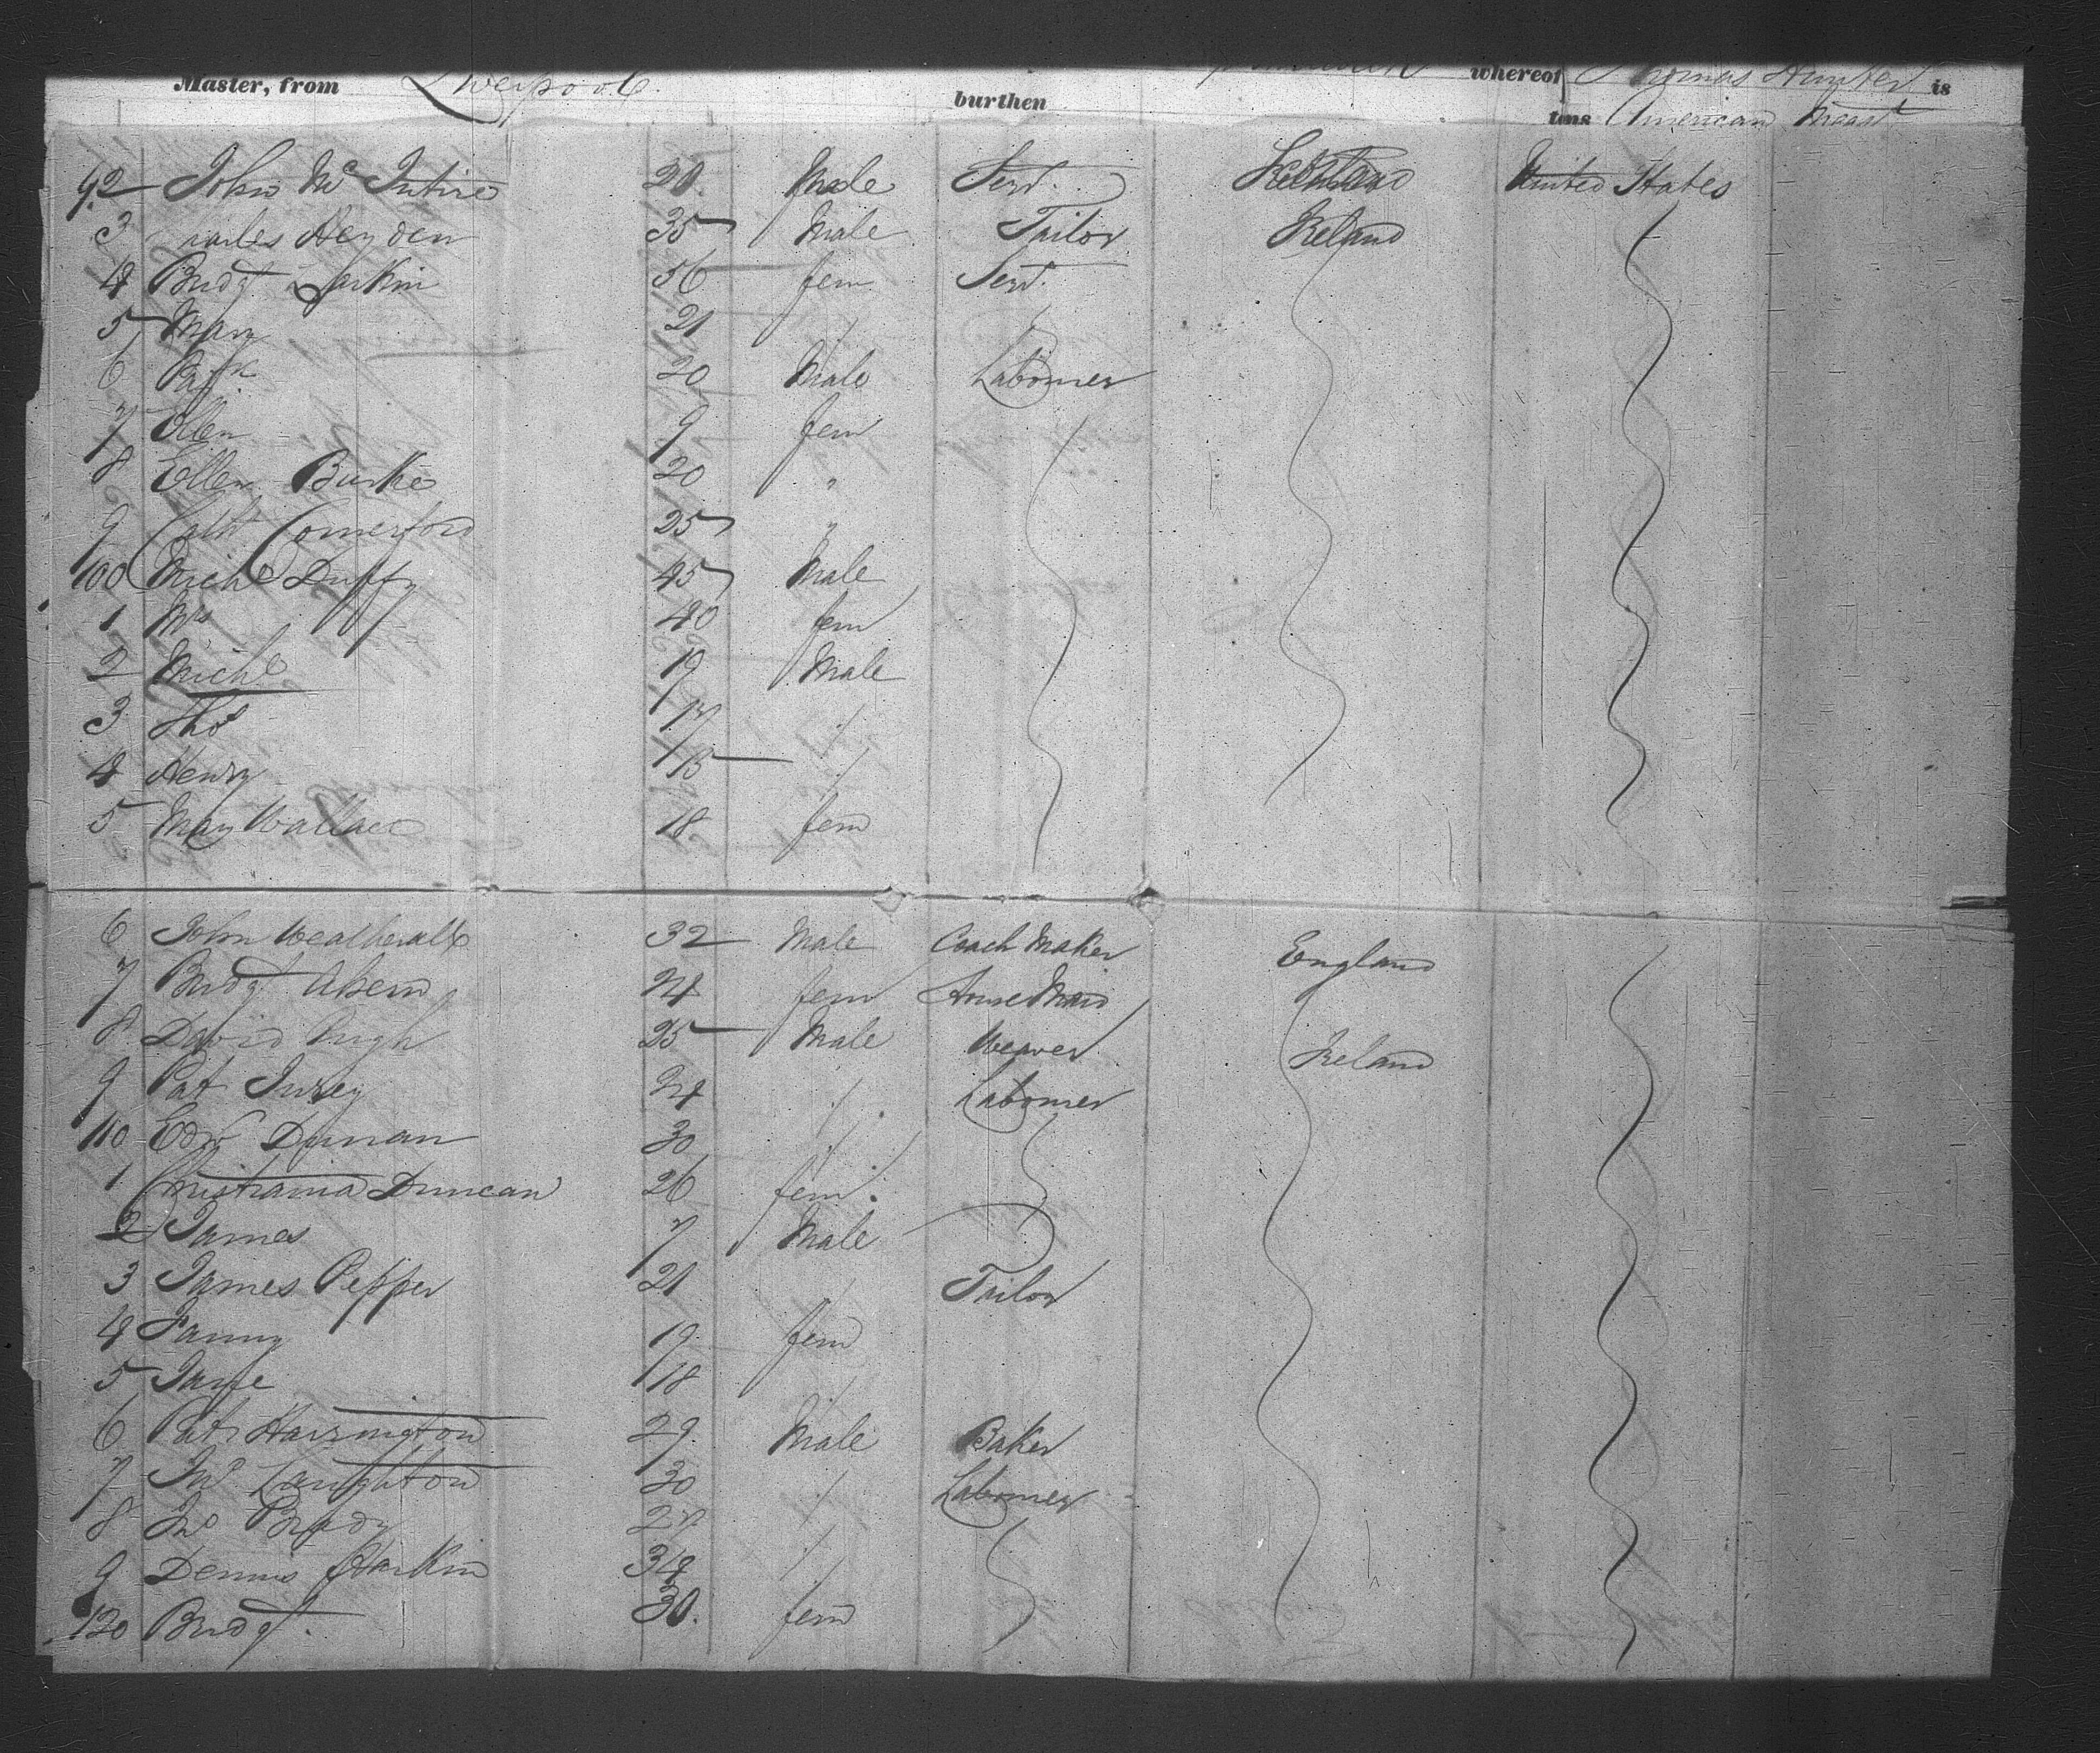 whereof Thomas Hunter is
Master, from Liverpool burthen
tons American Meast
92 John Mc Intire 20 Male Servt. United States
3 Heyden 35 Male Tailor Ireland
4 Bridgt Larkin 56 fem Servt.
5 Mary 21 "
6 Patk 20 Male Labourer
7 Ellen 9 fem
8 Ellen Burke 20 "
9 Cath Comerford 25 "
100 Michl Duffy 45 Male
1 Mrs 40 fem
2 Michl 19 Male
3 Thos 17 "
4 Henry 15 "
5 Mary Wallace 18 fem
6 John Weatherall 32 Male Coach Maker England
7 Bridgt Ahern 24 fem
8 David Pugh 25 Male Weaver Ireland
9 Pat 24 " Labourer
110 Edwd 30 "
1 Christiania Duncan 26 fem
2 James 7 Male
3 James Pepper 21 Tailor
4 Fanny 19 fem
5 Jane 18
6 Pat Harrington 29 Male Baker
7 Jno Laughton 30 " Labourer
8 Jno Brady 27 "
9 Dennis Harkin 34 "
120 Bridgt. 30. fem